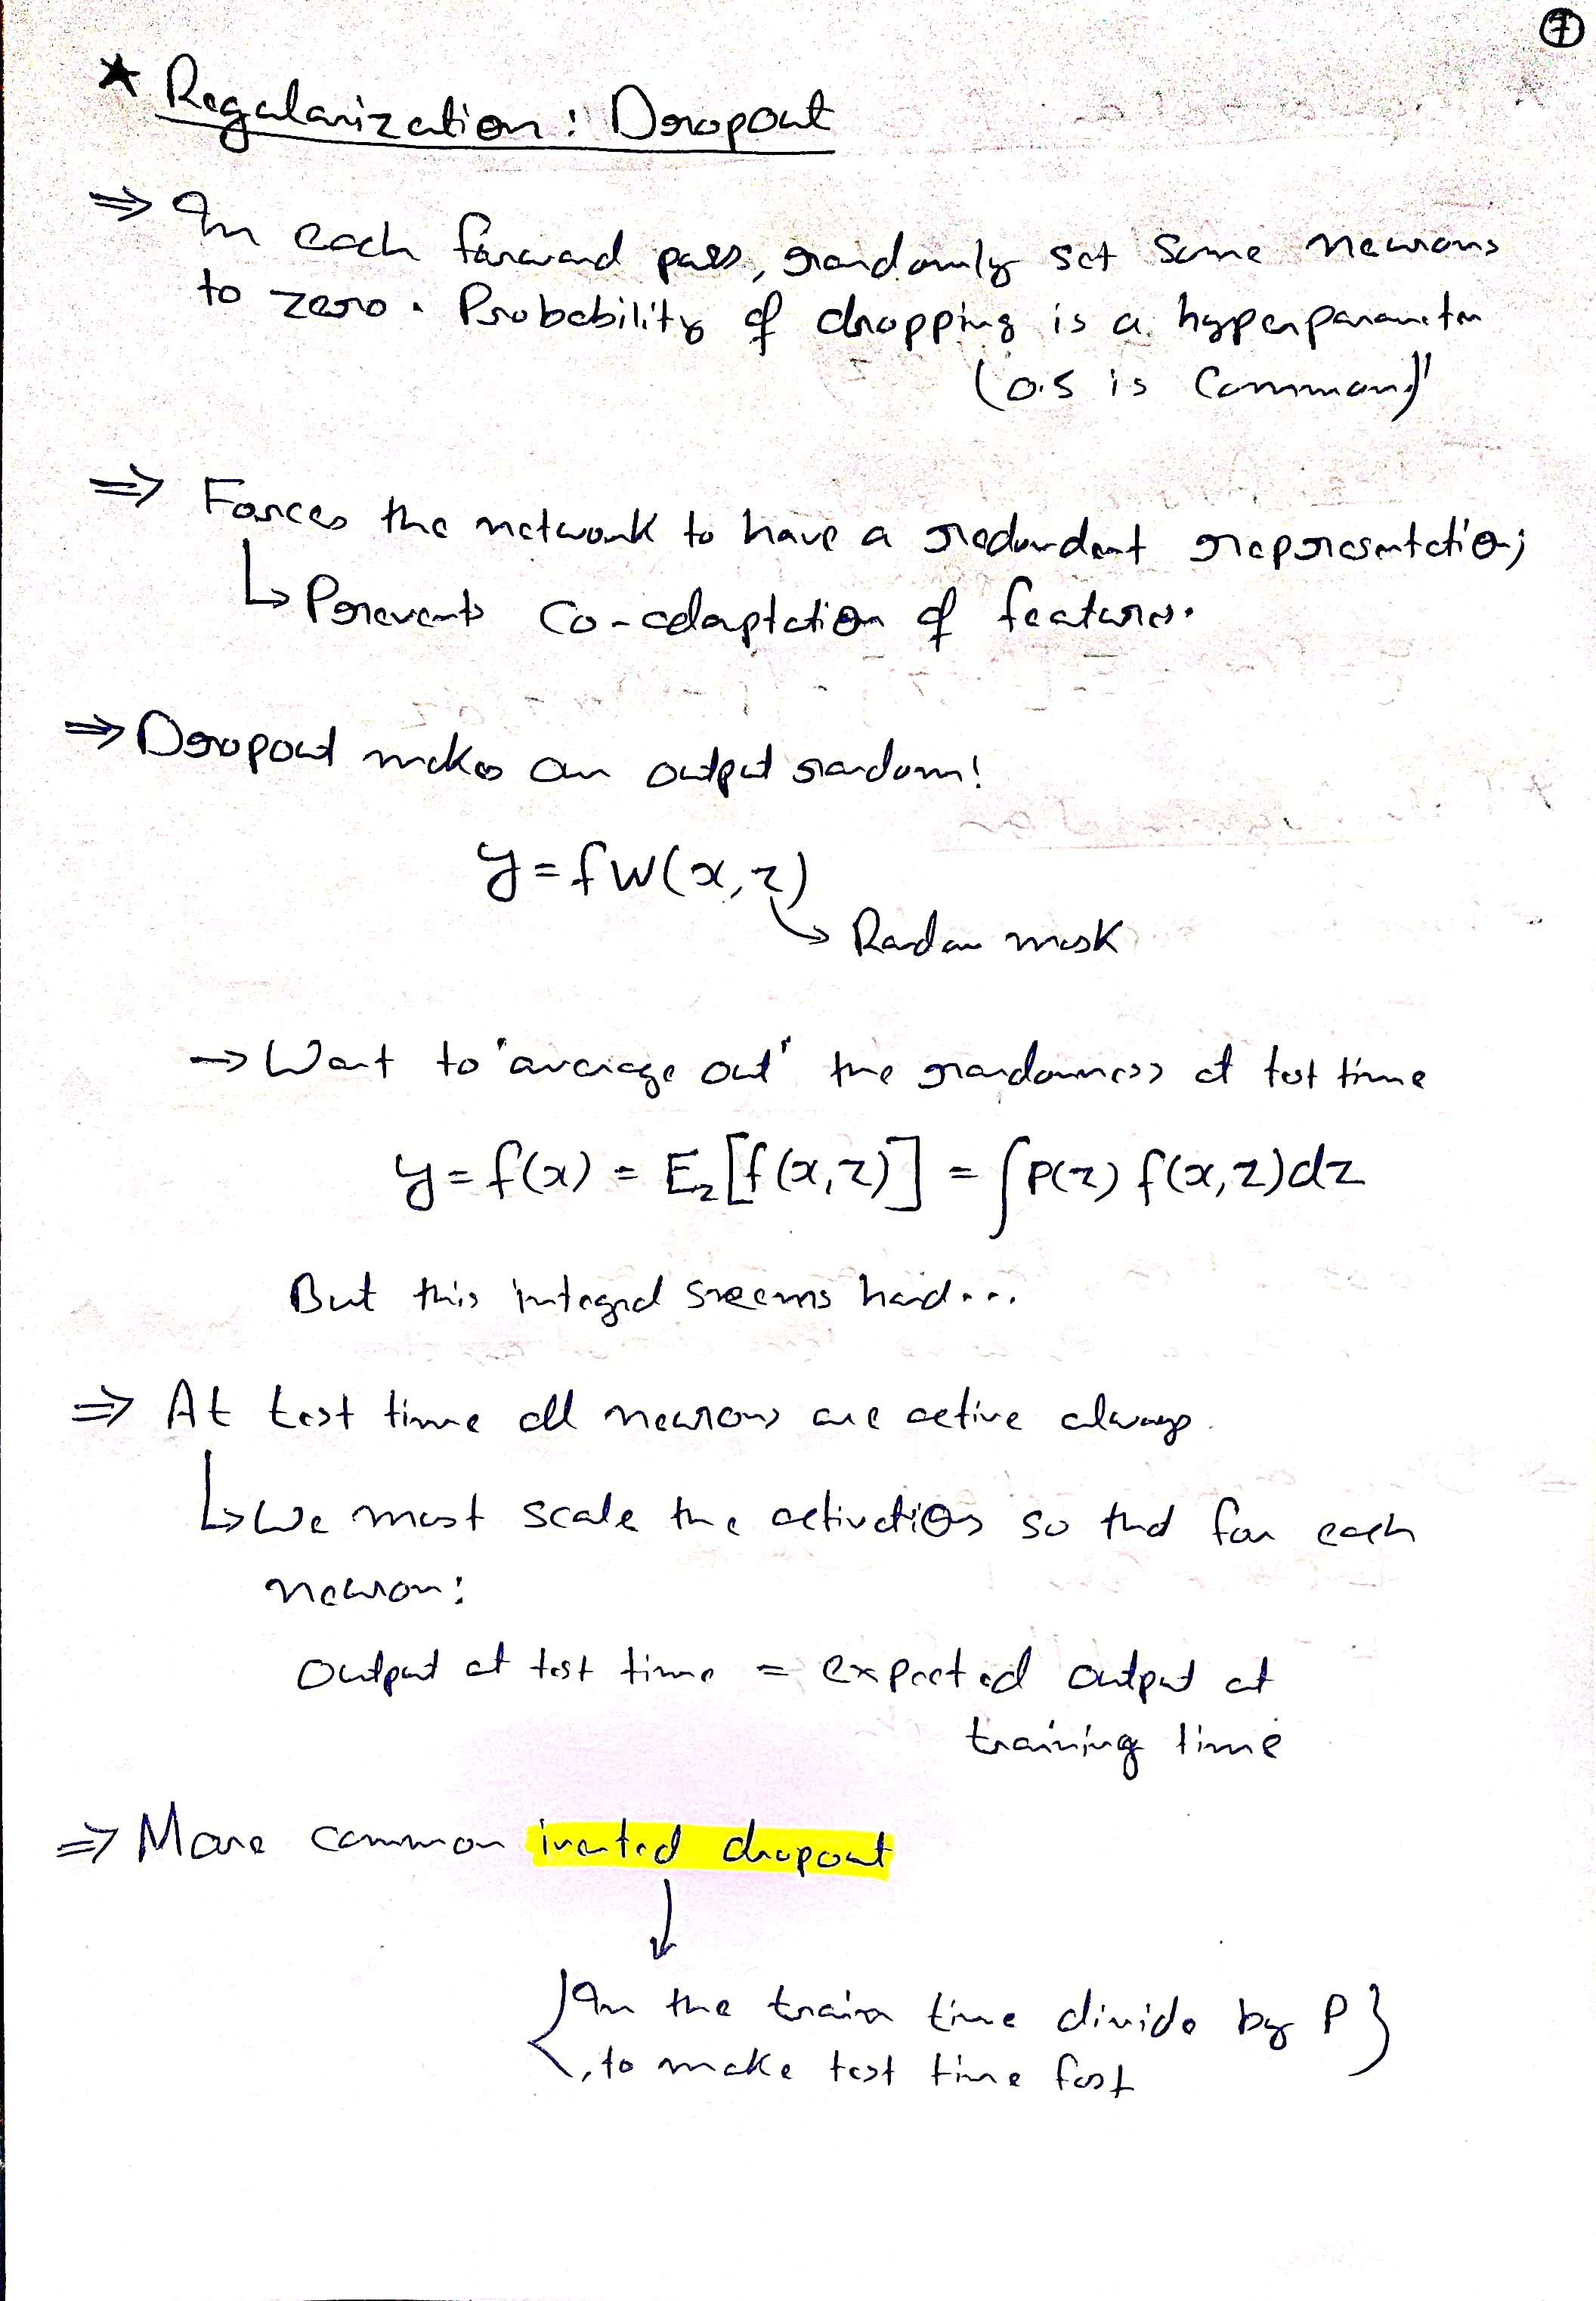 7
* Regularization: Dropout
⇒ In each forward pass, randomly set some neurons
to zero. Probability of dropping is a hyperparameter
(0.5 is Common)
⇒ Forces the network to have a redundant representation;
↳ Prevents Co-adaptation of features.
⇒ Dropout makes our output random!
y = fW(x,z)
→ Random mask
→ Want to "average out" the randomness at test time
y = f(x) = Ez[f(x,z)] = ∫P(z) f(x,z)dz
But this integral seems hard...
⇒ At test time all neurons are active always.
↳ We must scale the activations so that for each
neuron:
Output at test time = expected output at
training time
⇒ More common inverted dropout
↓
{In the train time divide by P}
, to make test time fast